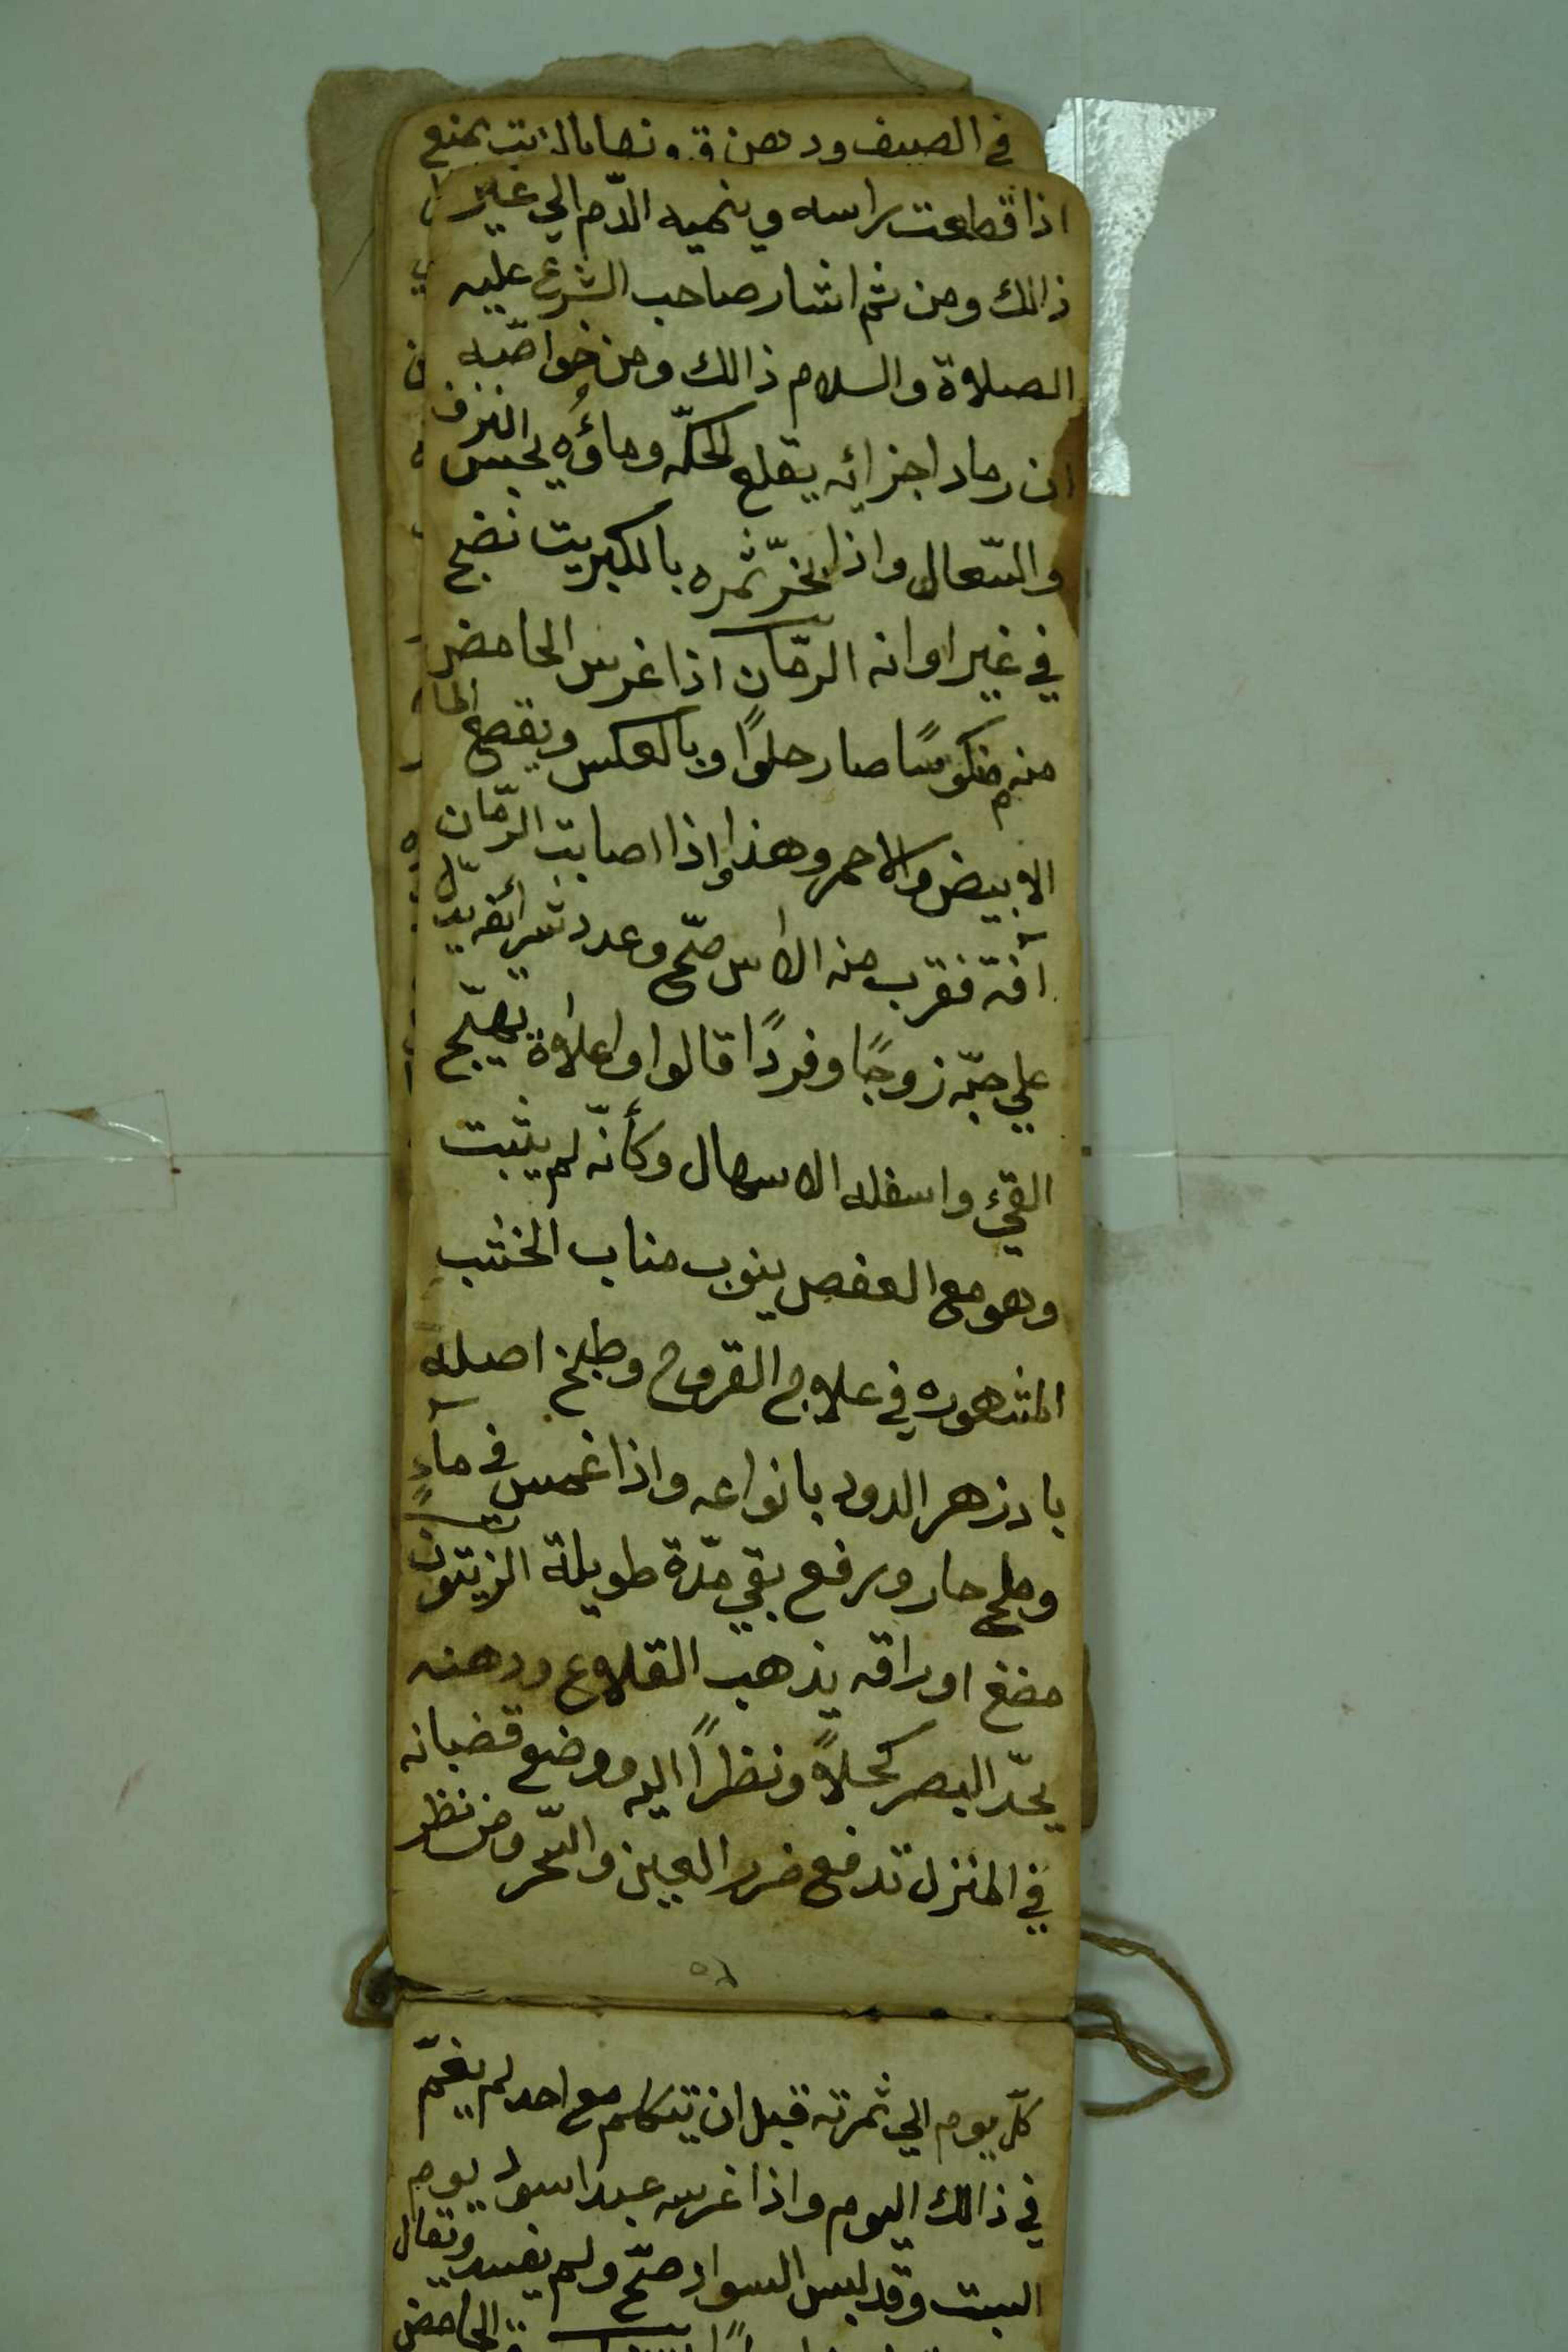 في الصيف ودهن قرونها بالزيت يمنع
اذا قطعت راسه وينميه الدّم الي غير
ذالك ومن ثم اشار صاحب الشرع عليه
الصلاة والسلام ذالك ومن خواصّه
ان رماد اجزائه يقلع الحكّه وماؤه يحبس النزف
والسّعال واذا بخّر ثمره بالكبريت نضج
في غير اوانه الرمّان اذا غرس الحامض
منه منكوسًا صار حلوًا وبالعكس ويقع الما
الابيض والاحمر وهذا واذا اصابت الرمّان
آفة فقرب منه الاس صحّ وعدد شرائفه يدلّ
علي حبّه زوجًا وفردًا قالوا واعلاه يهيّج
القيء واسفله الاسهال وكأنّه لم يثبت
وهو مع العفص ينوب مناب الخشب
المشهوره في علاج القروح وطبخ اصله
بادزهر الدود بانواعه واذا غمس في مآءٍ
وملح حار ورفع بقي مدّة طويلة الزيتون
مضغ اوراقه يذهب القلاع ودهنه
يحدّ البصر كحلاً ونظراً اليه ووضع قضبانه
في المنزل تدفع ضرر العين والسّحر ومن نظر
كلّ يوم الي ثمرته قبل ان يتكلم مع احد لم يغتمّ
في ذالك اليوم واذا غرسه عبد اسود يوم
السبت وقد لبس السواد صحّ ولم يفسد ويقال
الحامض